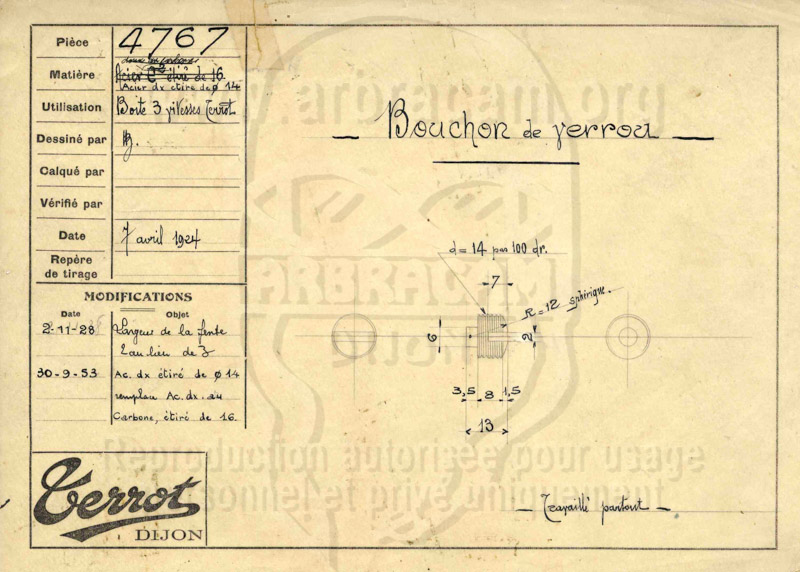 Pièce 4767
Matière Acier Cé étiré de 16.
Acier dx étiré de ø 14
Utilisation Boite 3 vitesses Terrot
Dessiné par
Calqué par
Vérifié par
Date 7 avril 1924
Repère
de tirage
MODIFICATIONS
Date Objet
2-11-28 Largeur de la fente
2 au lieu de 3
30-9-53 Ac. dx étiré de ø 14
remplace Ac. dx. au
Carbone, étiré de 16.
Terrot
DIJON
– Bouchon de verrou –
d = 14 pas 100 dr.
7
R = 12 sphérique.
6
2
3,5 8 1,5
13
– Travaillé partout –
www.arbracam.org
ARBRACAM
DIJON
Reproduction autorisée pour usage
personnel et privé uniquement